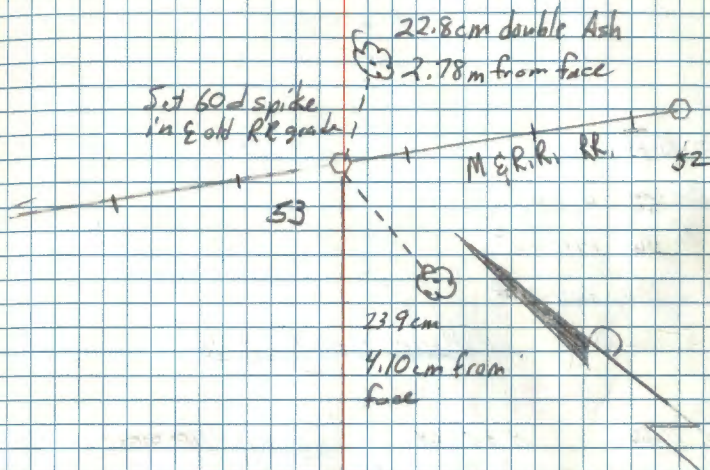 22.8cm double Ash
2.78m from face
Set 60d spike
in ℄ old RR grade
M & R.R. RR.
52
53
23.9cm
4.10 cm from
face